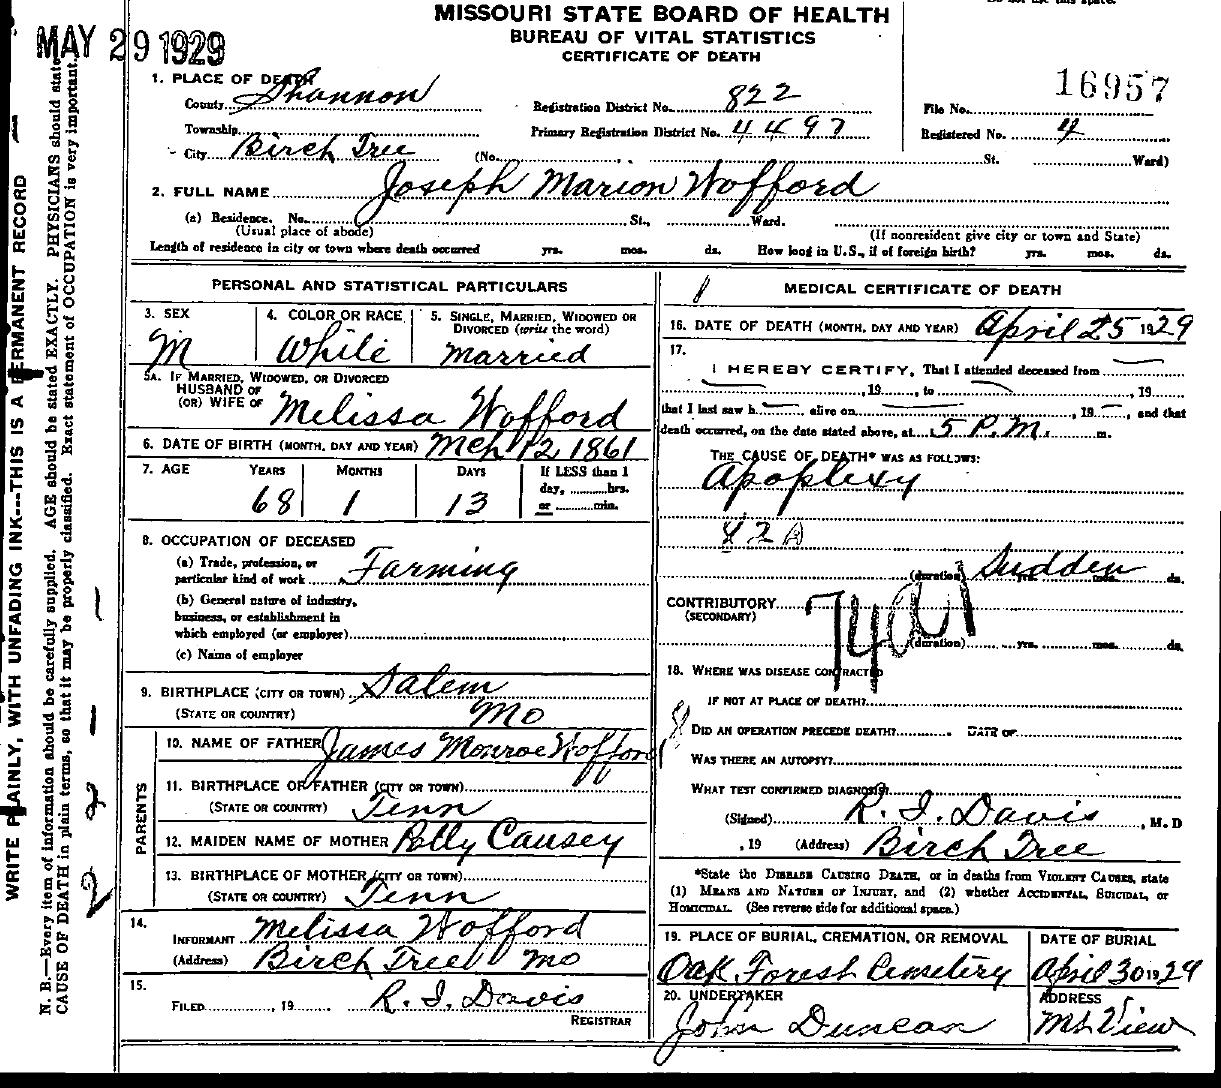 MISSOURI STATE BOARD OF HEALTH
BUREAU OF VITAL STATISTICS
CERTIFICATE OF DEATH
MAY 29 1929
1. PLACE OF DEATH
County Shannon Registration District No. 822 File No. 16957
Township Primary Registration District No. 4497 Registered No. 4
City Birch Tree (No. St. Ward)
2. FULL NAME Joseph Marion Wofford
(a) Residence. No. St., Ward.
(Usual place of abode) (If nonresident give city or town and State)
Length of residence in city or town where death occurred yrs. mos. ds. How long in U.S., if of foreign birth? yrs. mos. ds.
PERSONAL AND STATISTICAL PARTICULARS
3. SEX 4. COLOR OR RACE 5. SINGLE, MARRIED, WIDOWED OR
DIVORCED (write the word)
M White Married
5A. IF MARRIED, WIDOWED, OR DIVORCED
HUSBAND OF
(OR) WIFE OF Melissa Wofford
6. DATE OF BIRTH (MONTH, DAY AND YEAR) Mch 12 1861
7. AGE YEARS MONTHS DAYS If LESS than 1
day, hrs.
68 1 13 or min.
8. OCCUPATION OF DECEASED
(a) Trade, profession, or
particular kind of work Farming
(b) General nature of industry,
business, or establishment in
which employed (or employer)
(c) Name of employer
9. BIRTHPLACE (CITY OR TOWN) Salem
(STATE OR COUNTRY) Mo
PARENTS
10. NAME OF FATHER James Monroe Wofford
11. BIRTHPLACE OF FATHER (CITY OR TOWN)
(STATE OR COUNTRY) Tenn
12. MAIDEN NAME OF MOTHER Polly Causey
13. BIRTHPLACE OF MOTHER (CITY OR TOWN)
(STATE OR COUNTRY) Tenn
14.
INFORMANT Melissa Wofford
(Address) Birch Tree Mo
15.
FILED , 19 R. I. Davis
REGISTRAR
MEDICAL CERTIFICATE OF DEATH
16. DATE OF DEATH (MONTH, DAY AND YEAR) April 25 1929
17.
I HEREBY CERTIFY, That I attended deceased from
, 19 , to , 19 ,
that I last saw h alive on , 19 , and that
death occurred, on the date stated above, at 5 P.M. m.
THE CAUSE OF DEATH* WAS AS FOLLOWS:
Apoplexy
82A
(duration) Sudden yrs. mos. ds.
CONTRIBUTORY 74a1
(SECONDARY)
(duration) yrs. mos. ds.
18. WHERE WAS DISEASE CONTRACTED
IF NOT AT PLACE OF DEATH?
DID AN OPERATION PRECEDE DEATH? DATE OF
WAS THERE AN AUTOPSY?
WHAT TEST CONFIRMED DIAGNOSIS?
(Signed) R. I. Davis , M.D
, 19 (Address) Birch Tree
*State the DISEASE CAUSING DEATH, or in deaths from VIOLENT CAUSES, state
(1) MEANS AND NATURE OF INJURY, and (2) whether ACCIDENTAL, SUICIDAL, or
HOMICIDAL. (See reverse side for additional space.)
19. PLACE OF BURIAL, CREMATION, OR REMOVAL DATE OF BURIAL
Oak Forest Cemetery April 30 1929
20. UNDERTAKER ADDRESS
John Duncan Mt View
WRITE PLAINLY, WITH UNFADING INK---THIS IS A PERMANENT RECORD
N. B.—Every item of information should be carefully supplied. AGE should be stated EXACTLY. PHYSICIANS should state
CAUSE OF DEATH in plain terms, so that it may be properly classified. Exact statement of OCCUPATION is very important.